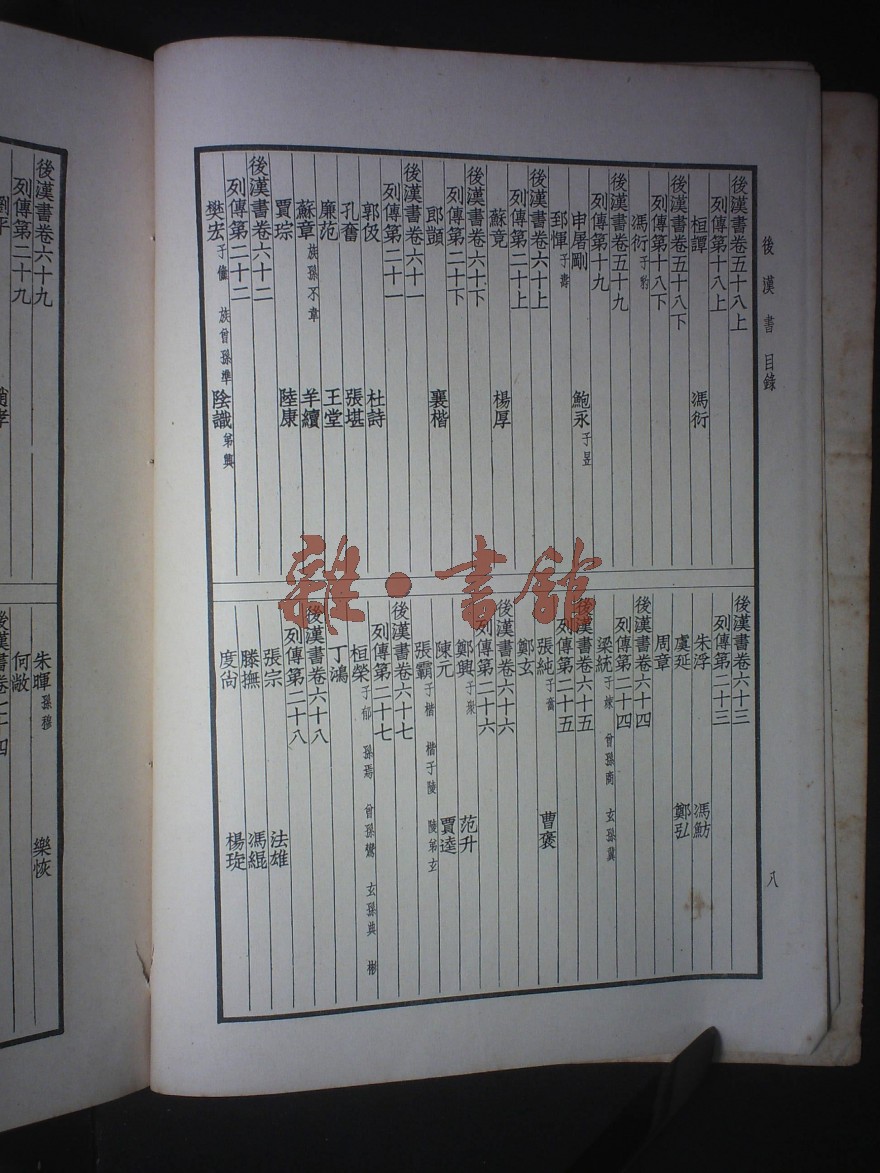 後漢書 目錄
八
後漢書卷五十八上
列傳第十八上
桓譚 馮衍
後漢書卷五十八下
列傳第十八下
馮衍 子豹
後漢書卷五十九
列傳第十九
申屠剛 鮑永 子昱
郅惲 子壽
後漢書卷六十上
列傳第二十上
蘇竟 楊厚
後漢書卷六十下
列傳第二十下
郎顗 襄楷
後漢書卷六十一
列傳第二十一
郭伋 杜詩
孔奮 張堪
廉范 王堂
蘇章 族孫不韋 羊續
賈琮 陸康
後漢書卷六十二
列傳第二十二
樊宏 子鯈 族曾孫準 陰識 弟興
後漢書卷六十三
列傳第二十三
朱浮 馮魴
虞延 鄭弘
周章
後漢書卷六十四
列傳第二十四
梁統 子竦 曾孫商 玄孫冀
後漢書卷六十五
列傳第二十五
張純 子奮 曹褒
鄭玄
後漢書卷六十六
列傳第二十六
鄭興 子眾 范升
陳元 賈逵
張霸 子楷 楷子陵 陵弟玄
後漢書卷六十七
列傳第二十七
桓榮 子郁 孫焉 曾孫鸞 玄孫典 彬
丁鴻
後漢書卷六十八
列傳第二十八
張宗 法雄
滕撫 馮緄
度尚 楊琁
後漢書卷六十九
列傳第二十九
劉平 趙孝
朱暉 孫穆 樂恢
何敞
雜·書館